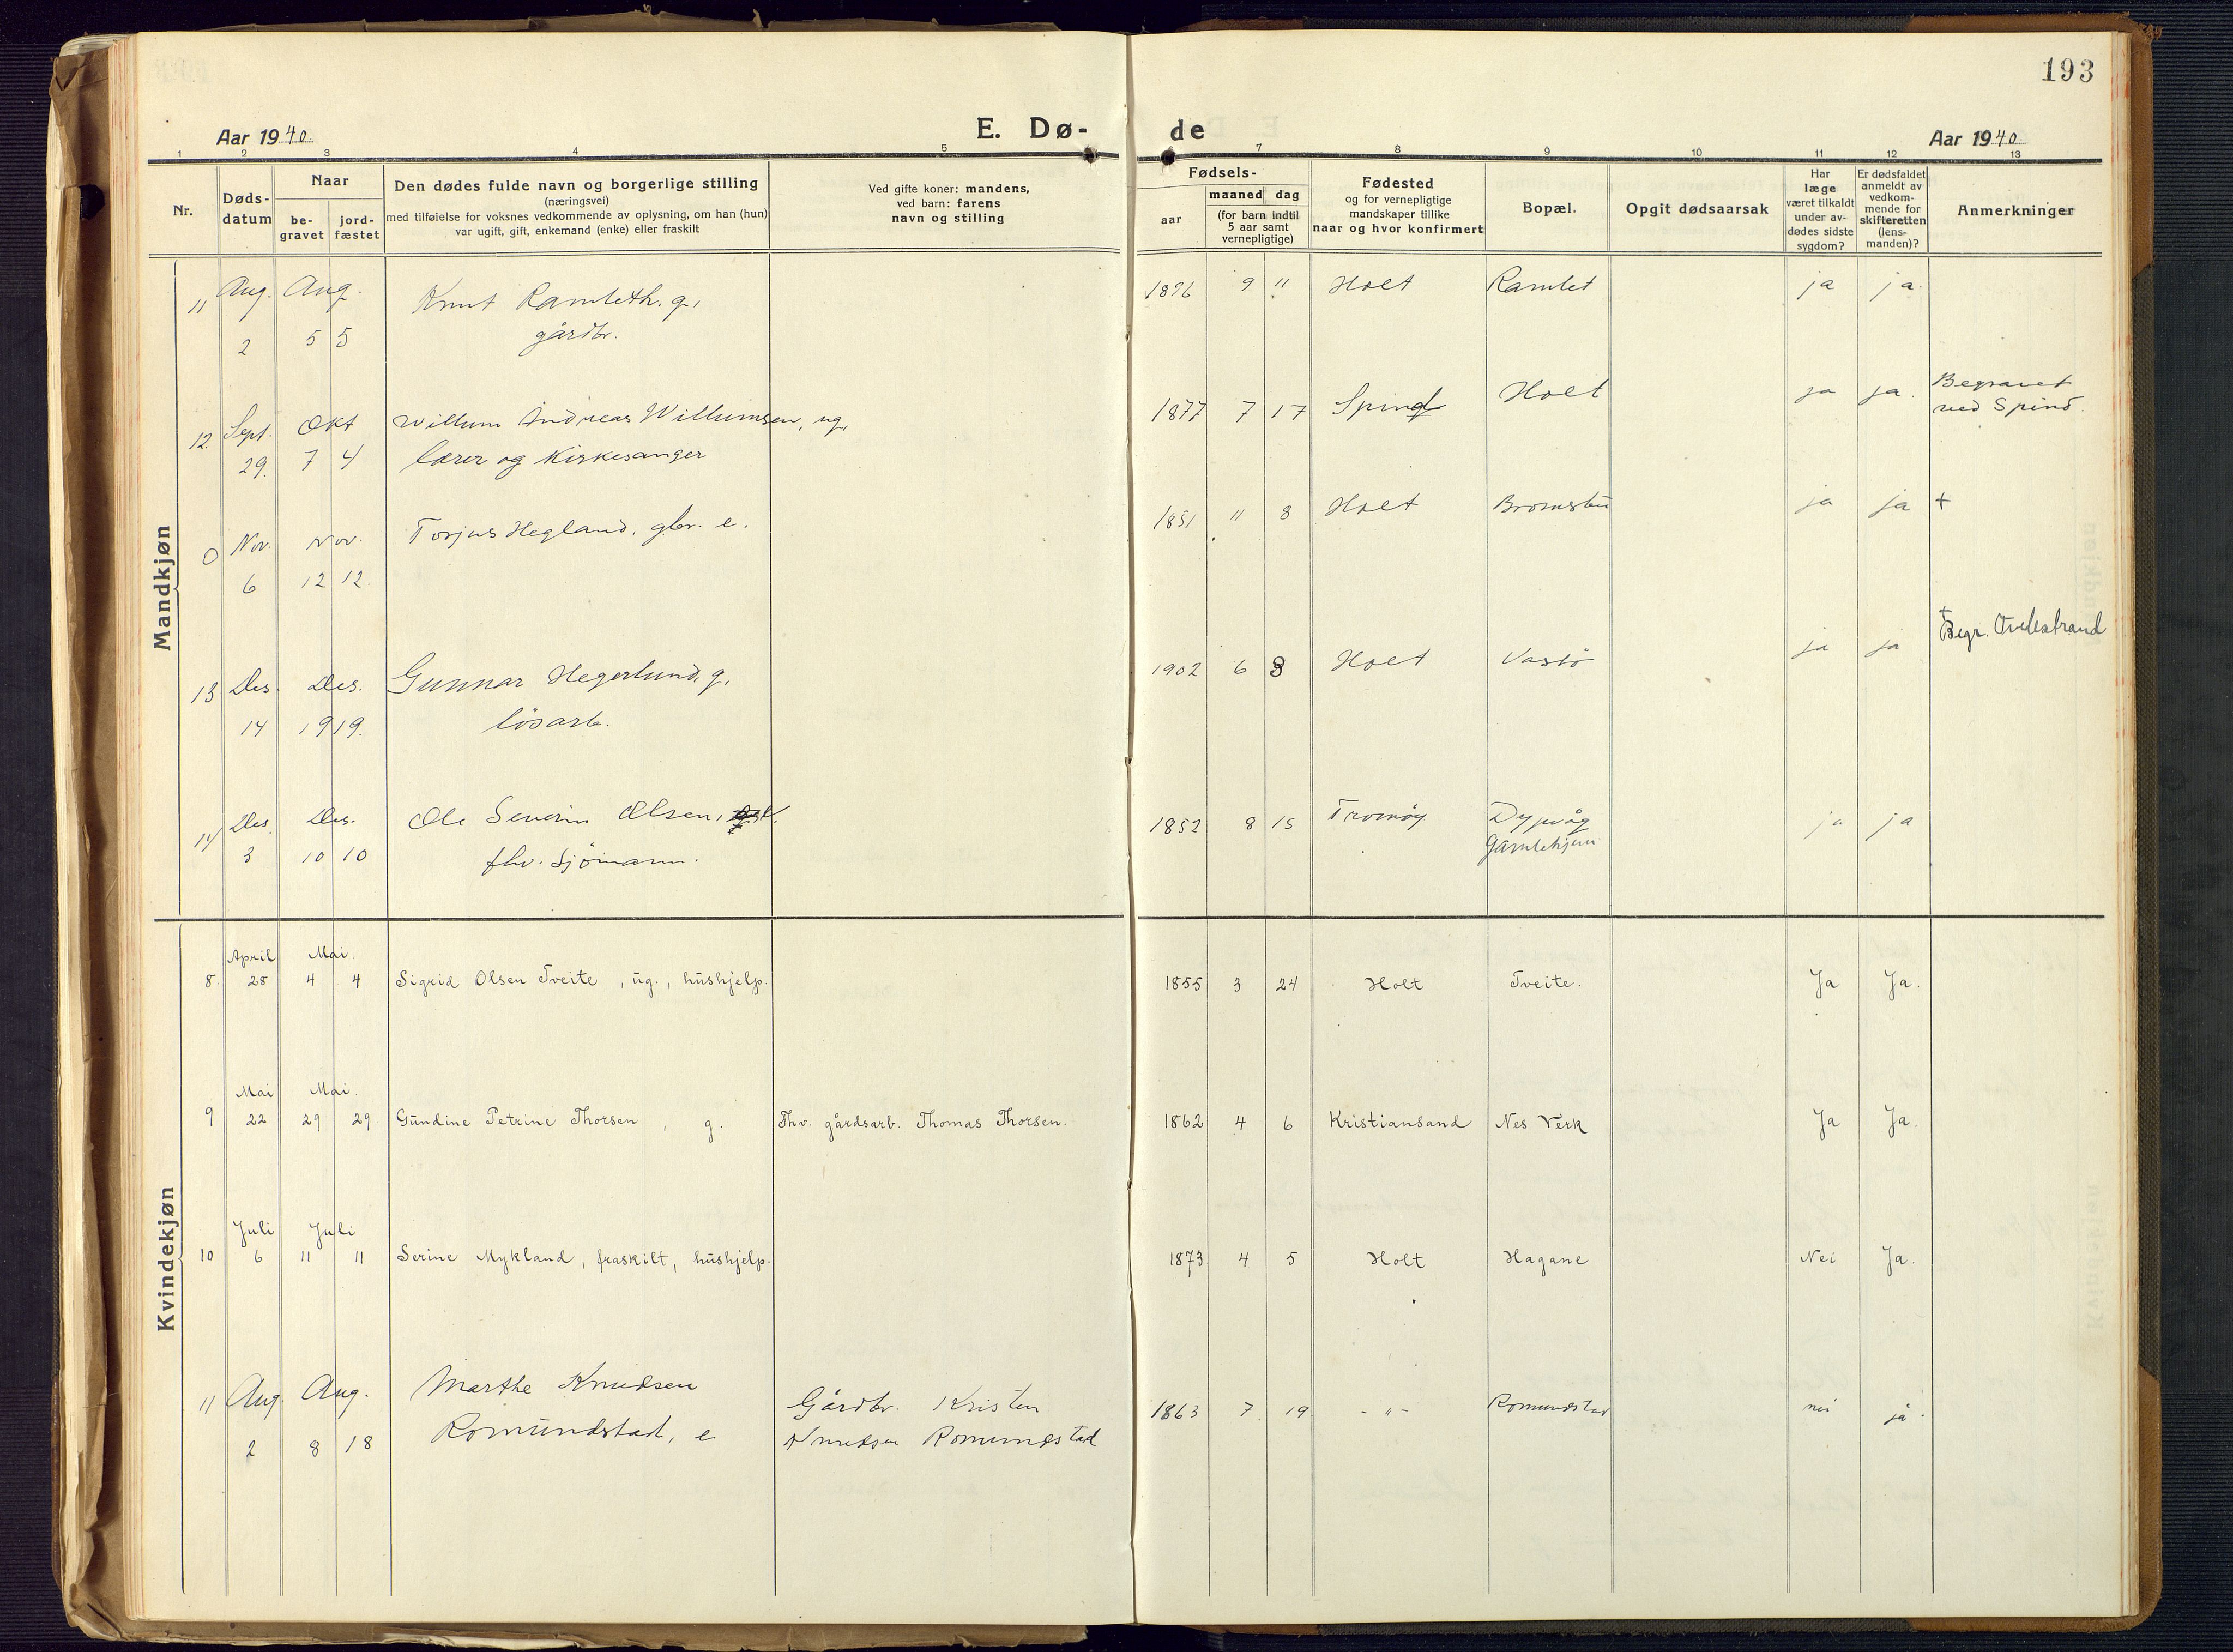 193
Aar 1940
E. Dø-
de
Aar 1940
1 2 3 4 5 6 7 8 9 10 11 12 13
Nr.
Døds-
datum
Naar
be-
gravet
jord-
fæstet
Den dødes fulde navn og borgerlige stilling
(næringsvei)
med tilføielse for voksnes vedkommende av oplysning, om han (hun)
var ugift, gift, enkemand (enke) eller fraskilt
Ved gifte koner: mandens,
ved barn: farens
navn og stilling
Fødsels-
aar
maaned dag
(for barn indtil
5 aar samt
vernepligtige)
Fødested
og for vernepligtige
mandskaper tillike
naar og hvor konfirmert
Bopæl.
Opgit dødsaarsak
Har
læge
været tilkaldt
under av-
dødes sidste
sygdom?
Er dødsfaldet
anmeldt av
vedkom-
mende for
skifteretten
(lens-
manden)?
Anmerkninger
Mandkjøn
11 Aug. Aug. Knut Ramleth. g, 1896 9 11 Holt Ramlet ja ja.
2 5 5 gårdbr.
12. Sept. Okt Willum Andreas Willumsen, ug, 1877 7 17 Spind Holt ja ja. Begravet
29. 7 4 lærer og Kirkesanger ved Spind.
0 Nov. Nov. Torjus Hegland, gbr. e. 1851 11 8 Holt ja ja +
6 12 12.
13 Des. Des. Gunnar Hegerlund, g. 1902 6 8 Holt Vastø ja ja + Begr. Tvedestrand
14 19 19. løsarb.
14 Des. Des. Ole Severin Olsen, 1852 8 15 Tromøy Dypvåg ja ja
3 10 10 fhv. Sjømann. Gamlehjem
Kvindekjøn
April Mai.
8. 28 4 4 Sigrid Olsen Tveite, ug., hushjelp. 1855 3 24 Holt Tveite. Ja Ja.
Mai Mai.
9 22 29 29. Gundine Petrine Thorsen, g. Fhv. gårdsarb. Thomas Thorsen. 1862 4 6 Kristiansand Nes Verk Ja Ja.
Juli Juli
10 6 11 11 Serine Mykland, fraskilt, hushjelp. 1873 4 5 Holt Hagane Nei Ja.
11 Aug. Aug. Marthe Knudsen Gårdbr. Kristen 1863 7 19 - " - Romundstad nei ja.
2 8 18 Romundstad, e Knudsen Romundstad